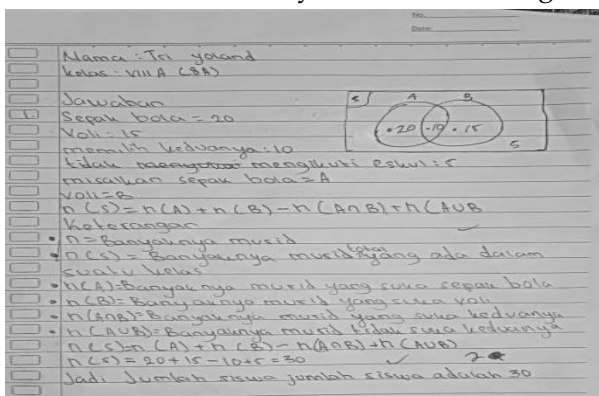 No.
Date:
Nama : Tri yoland
kelas : VIII A (8A)
Jawaban
1. Sepak bola = 20
Voli = 15
memilih keduanya : 10
tidak mengikuti eskul : 5
misalkan sepak bola = A
voli = B
S A B
.20 .10 .15
5
n (S) = n (A) + n (B) - n (A∩B) + n (A∪B
keterangan
• n = Banyaknya murid
• n (S) = Banyaknya murid total yang ada dalam
suatu kelas
• n (A) = Banyaknya murid yang suka sepak bola
• n (B) = Banyaknya murid yang suka voli
• n (A∩B) = Banyaknya murid yang suka keduanya
• n (A∪B) = Banyaknya murid tidak suka keduanya
n (S) = n (A) + n (B) - n (A∩B) + n (A∪B)
n (S) = 20 + 15 - 10 + 5 = 30
Jadi Jumlah siswa jumlah siswa adalah 30